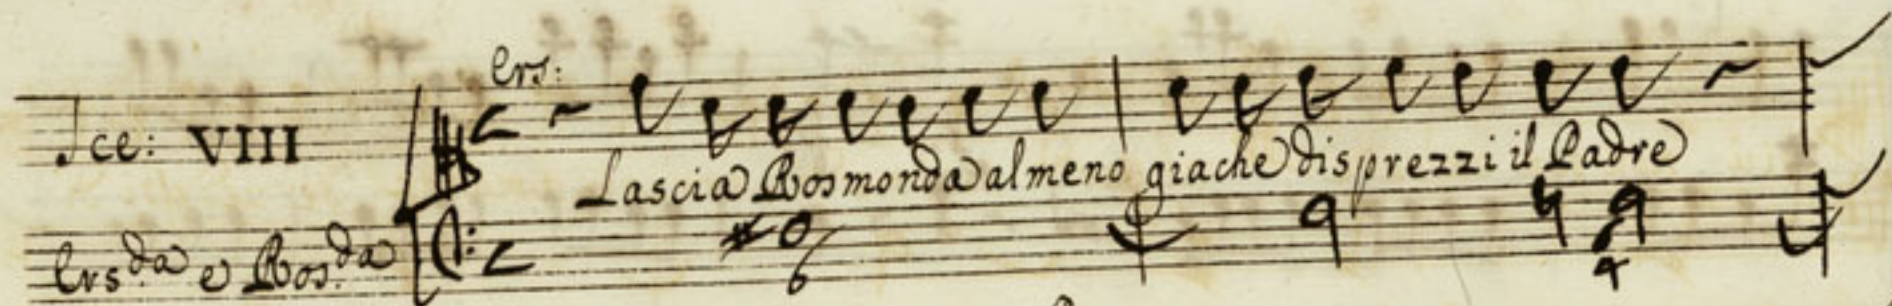 Ers:
Sce: VIII
Lascia Rosmonda almeno giache disprezzi il Padre
Ers.da e Ros.da
6 4